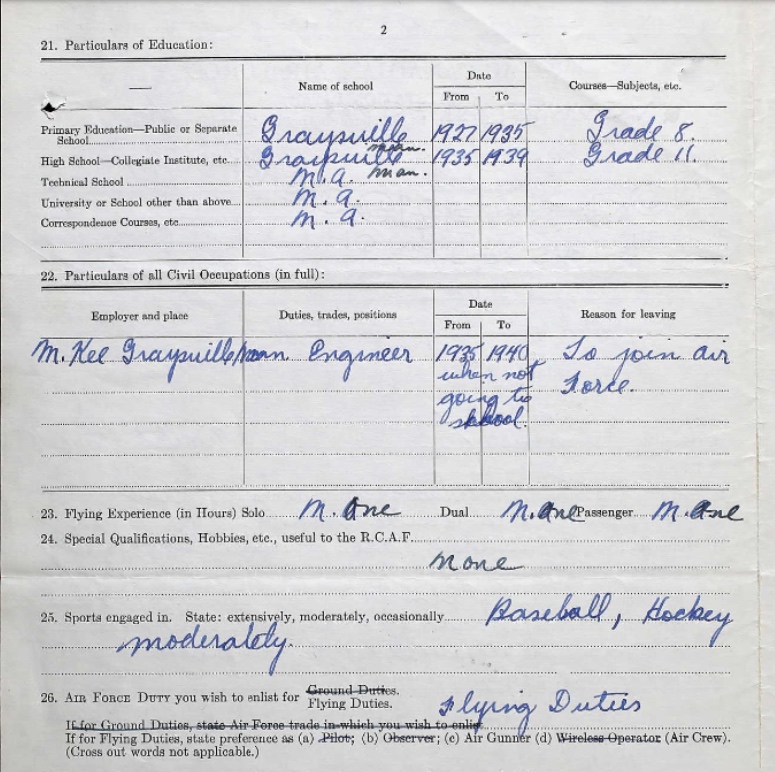 2
21. Particulars of Education:
Name of school Date Courses—Subjects, etc.
From To
Primary Education—Public or Separate
School Graysville 1927 1935 Grade 8.
man.
High School—Collegiate Institute, etc. Graysville 1935 1939 Grade 11.
Technical School M.A. man.
University or School other than above M.A.
Correspondence Courses, etc. M.A.
22. Particulars of all Civil Occupations (in full):
Employer and place Duties, trades, positions Date Reason for leaving
From To
M. Kee Graysville man Engineer 1935 1940 To join air
when not Force.
going to
school.
23. Flying Experience (in Hours) Solo None Dual None Passenger None
24. Special Qualifications, Hobbies, etc., useful to the R.C.A.F.
None
25. Sports engaged in. State: extensively, moderately, occasionally Baseball, Hockey
moderately.
26. AIR FORCE DUTY you wish to enlist for Ground Duties.
Flying Duties. Flying Duties
If for Ground Duties, state Air Force trade in which you wish to enlist
If for Flying Duties, state preference as (a) Pilot; (b) Observer; (c) Air Gunner (d) Wireless Operator (Air Crew).
(Cross out words not applicable.)